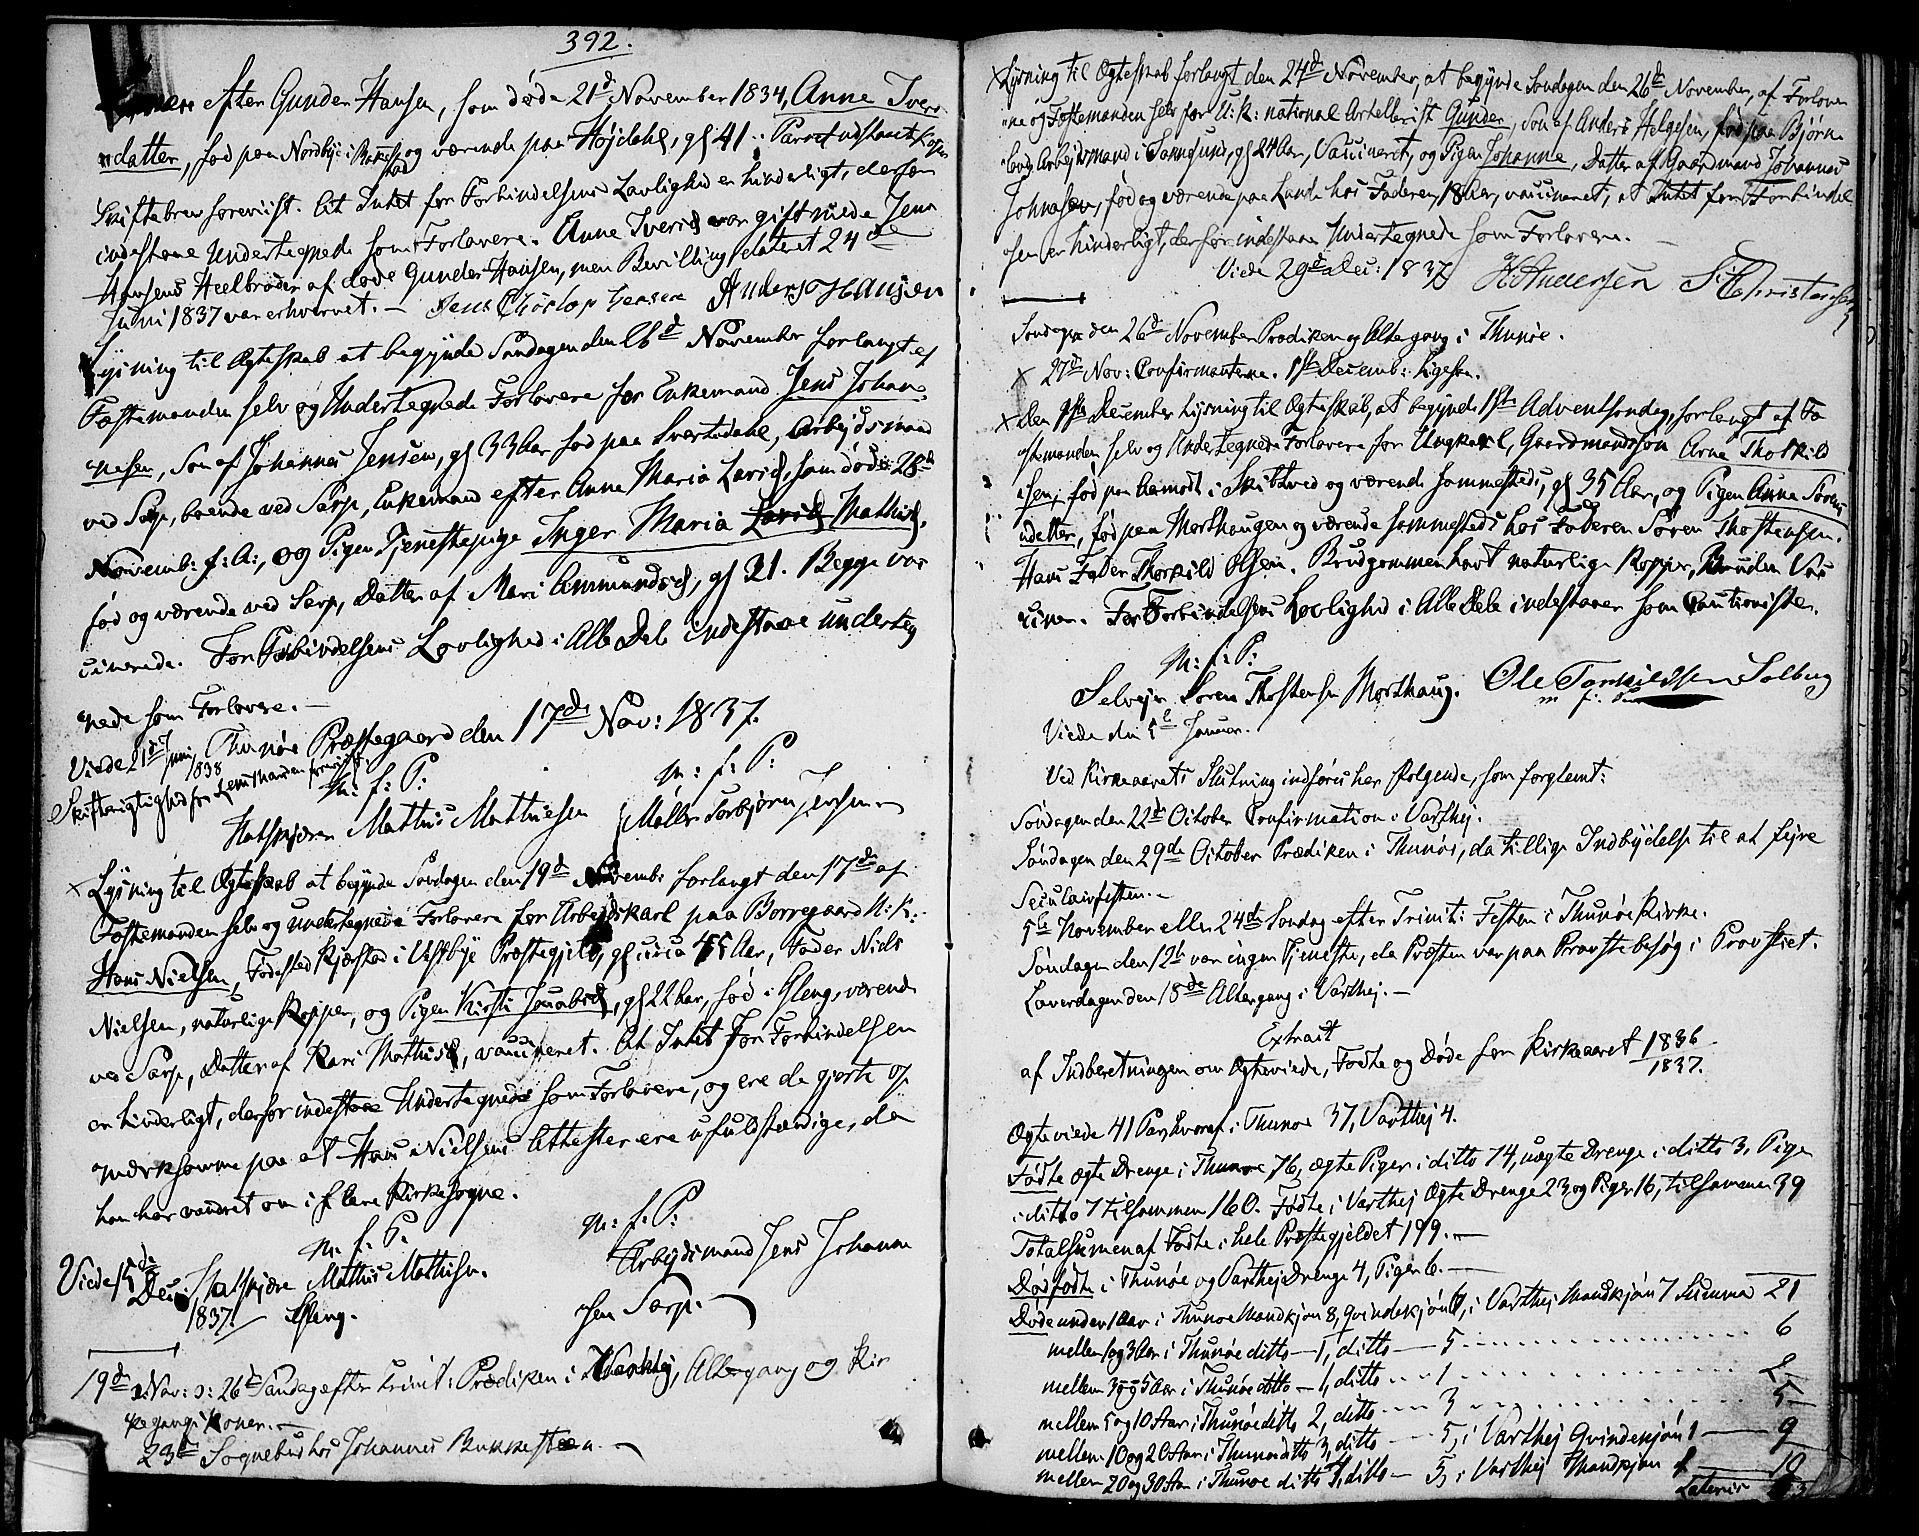 392.
efter Gunder Hansen, som døde 21d November 1834, Anne Ivers
datter, fød paa Nordbye i og værende paa Højdahl, gl 41.
Skiftebrev foreviist. At Intet for Forbindelsens Lovlighed er hinderligt, derfor
indestaae Undertegnede som Forlovere. Anne Iversd var gift mede Jens
Hansens Heelbroder af døde Gunder Hansen, men Bevilling dateret 24de
Juni 1837 var erhvervet. — Jens Hansen Anders Hansen
Lysning til Ægteskab at begynde Søndagen den November forlangt af
Fæstemanden selv og Undertegnede Forlovere for Enkemand Jens Johan-
nesen, Søn af Johannes Jensen, gl 33 Aar fød paa Svartedahl, Arbejdsmand
ved Sarp, boende ved Sarp, Enkemand efter Anne Maria Larsd, som døde 28de
Novemb: f: A:, og Pigen Tjenestepige Inger Maria Larsd Mathisd,
fød og værende ved Sarp, Datter af Mari Amundsd, gl 21. Begge vac
cinerede. For Forbindelsens Lovlighed i Alle Dele indestaae underteg
nede som Forlovere. —
Thunøe Præstegaard den 17de Nov: 1837.
Viede 21de Juni 1838
Skifterigtighed fra Lensmanden foreviist.
m: f: P: m: f: P:
Hatskjæren Mathis Mathiesen Møller Torbjørn Jensen
x Lysning til Ægteskab at begynde Søndagen den 19d Novemb: forlangt den 17de af
Fæstemanden selv og undertegnede Forlovere for Arbejdskarl paa Borregaard U: K:
Hans Nielsen, Fødested Kjørstad i Vestbye Præstegjeld, gl circa 45 Aar, Fader Niels
Nielsen, naturlige Kopper, og Pigen Kirsti Jacobsd, gl 22 Aar, fød i Gleng, værende
ved Sarp, Datter af Kari Mathisd, vaccineret. At Intet for Forbindelsen
er hinderligt, derfor indestaae Undertegnede som Forlovere, og ere de gjorte op
mærksomme paa at Hans Nielsens Attester ere ufuldstændige, da
han har vandret om i flere Kirkesogne.
m. f. P. m: f. P:
Viede 15de Hatskjære Mathis Mathisen. Arbejdsmand Jens Johanne
Dec: 1837 Gleng. sen Sarp.
19de Nov: ɔ: 26de Søndag efter Trinit: Prædiken i Varthej, Altergang og Kir
kegangs Koner. —
23de Sognebud hos Johannes Bukkesteen. —
x Lysning til Ægteskab forlangt den 24d November, at begynde Søndagen den 26de November, af Forlover
ne og Fæstemanden selv for U: K: national Artellerist Gunder, Søn af Anders Helgesen, fød paa Bjørne
Arbejdsmand i Sannesund, gl 24 Aar, Vaccineret, og Pigen Johanne, Datter af Gaardmand Johannes
Johnsen, fød og værende paa Lande hos Faderen, 18 Aar, vaccineret, at Intet for Forbindel
sen er hinderligt, derfor indestaae Undertegnede som Forlovere. —
Viede 29de Dec: 1837 H Andersen Christensen
Søndagen den 26de November Prædiken og Altergang i Thunøe.
x 27de Nov: Confirmanterne. 1ste Decemb: Ligesaa.
x den 1ste December Lysning til Ægteskab, at begynde 1ste Adventssøndag, forlangt af Fæ
stemanden selv og Undertegnede Forlovere for Ungkarl, Gaardmandssøn Arne Thorkild
sen, fød paa Aamodt i Skibtved og værende sammesteds, gl 35 Aar, og Pigen Anne Sørens
datter, fød paa Morthaugen og værende sammesteds hos Faderen Søren Thostensen.
Hans Fader Thorkild Olsen. Brudgommen havt naturlige Kopper, Bruden Vac
cineret. For Forbindelsens Lovlighed i Alle Dele indestaaer som Cautionister.
m: f: P:
Selvejer Søren Thostensen Morthaug. Ole Torkildsen Solberg
m f. P
Viede den 5te Januar.
Ved Kirkeaarets Slutning indføres her Følgende, som forglemt:
Søndagen den 22de October Confirmation i Varthej.
Søndagen den 29de October Prædiken i Thunøe, da tillige Indbydelse til at fejre
Seculairfesten. —
5te November eller 24de Søndag efter Trinit: Festen i Thunøe Kirke.
Søndagen den 12te var ingen Tjeneste, da Præsten var paa Provstebesøg i Provstiet.
Løverdagen den 18de Altergang i Varthej. —
Extract
af Indberetningen om Ægteviede, Fødte og Døde for Kirkeaaret 1836
1837.
Ægteviede 41 Par, hvoraf i Thunøe 37, Varthej 4.
Fødte ægte Drenge i Thunøe 76, ægte Piger i ditto 74, uægte Drenge i ditto 3, Piger
i ditto 7 tilsammen 160. Fødte i Varthej Ægte Drenge 23 og Piger 16, tilsammen 39
Totalsumen af Fødte i hele Præstegjeldet 199. —
Dødfødte i Thunøe og Varthej Drenge 4, Piger 6. —
Døde under 1 Aar i Thunøe Mandkjøn 8, Qvindekjøn 6, i Varthej Mandkjøn 7 Summa 21
mellem 1 og 3 Aar i Thunøe ditto — 1, ditto — 5 6
mellem 3 og 5 Aar i Thunøe ditto — 1, ditto — 1 2
mellem 5 og 10 Aar i Thunøe ditto 2, ditto — 3 5
mellem 10 og 20 Aar i Thunøe ditto 3, ditto — 5, i Varthej Qvindekjøn 1 — 9
mellem 20 og 30 Aar i Thunøe ditto 4, ditto — 5, i Varthej Mandkjøn 1 — 10
Lateris 53